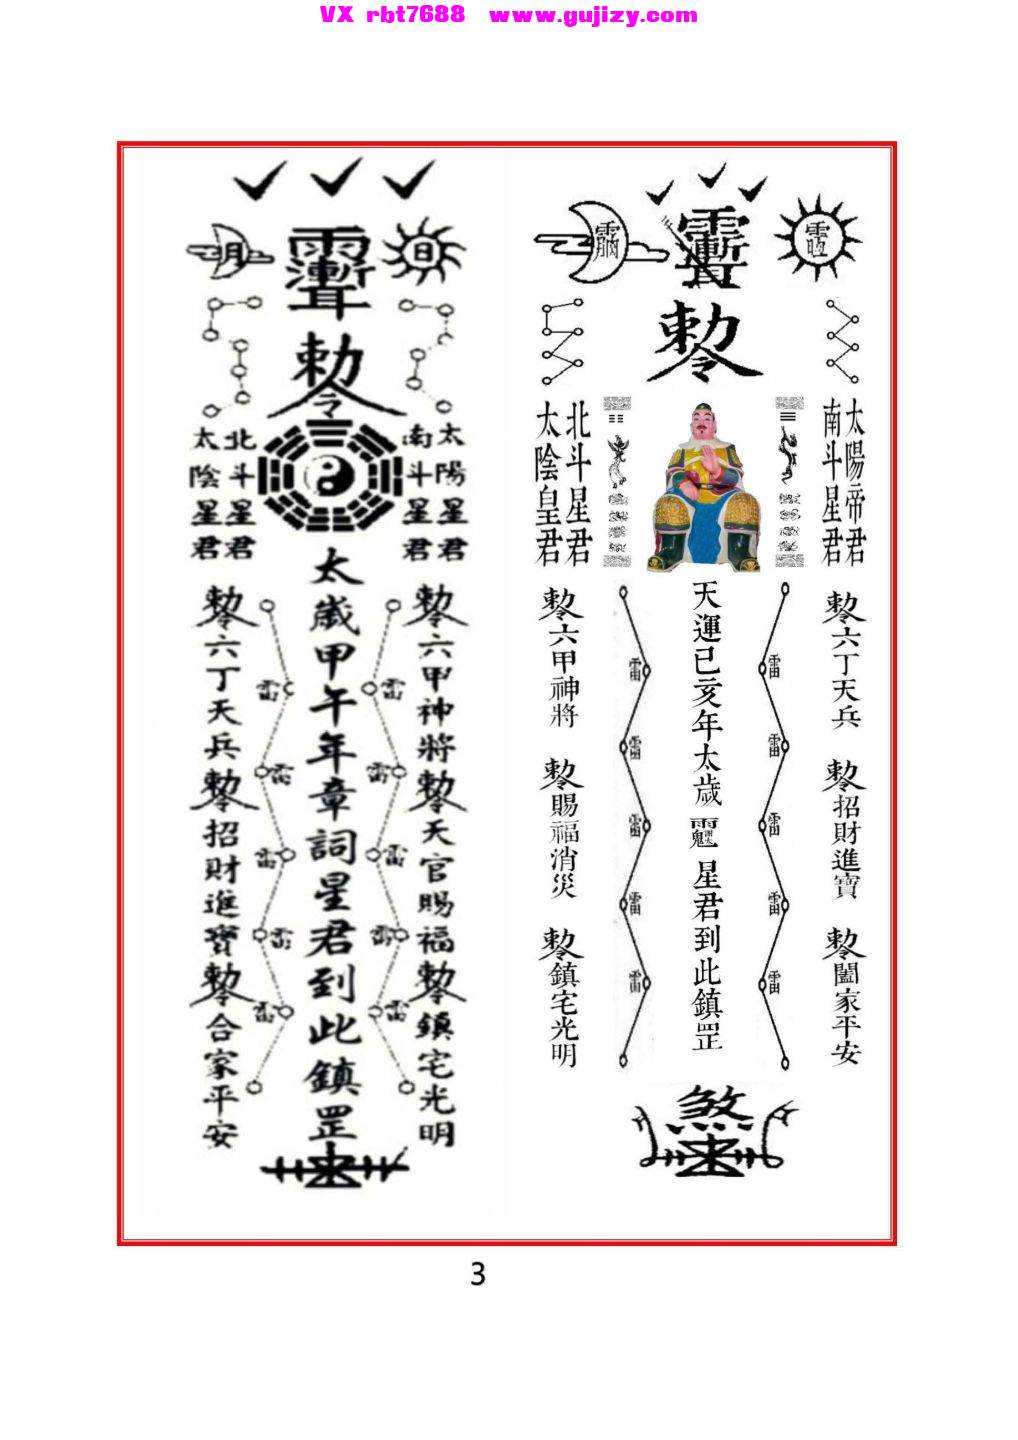 VX rbt7688 www.gujizy.com
月
日
敕令
太陰星君
北斗星君
南斗星君
太陽星君
太歲甲午年章詞星君到此鎮罡
敕令六丁天兵
敕令招財進寶
敕令合家平安
敕令六甲神將
敕令天官賜福
敕令鎮宅光明
雷 雷
雷 雷
雷 雷
雷 雷
雷 雷
敕令
太陰皇君
北斗星君
南斗星君
太陽帝君
天運已亥年太歲
星君到此鎮罡
敕令六甲神將
敕令賜福消災
敕令鎮宅光明
敕令六丁天兵
敕令招財進寶
敕令闔家平安
雷 雷
雷 雷
雷 雷
雷 雷
雷 雷
煞
3